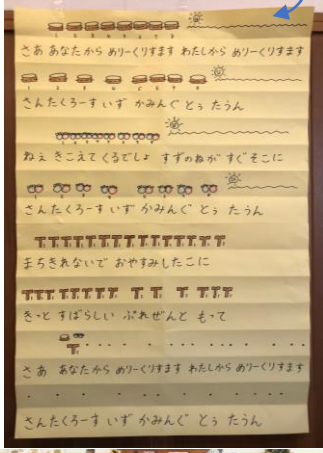 さあ あなたから めりーくりすます わたしから めりーくりすます
さんたくろーす いず かみんぐ とぅ たうん
ねぇ きこえてくるでしょ すずのねが すぐそこに
さんたくろーす いず かみんぐ とぅ たうん
まちきれないで おやすみしたこに
きっと すばらしい ぷれぜんと もって
さあ あなたから めりーくりすます わたしから めりーくりすます
さんたくろーす いず かみんぐ とぅ たうん